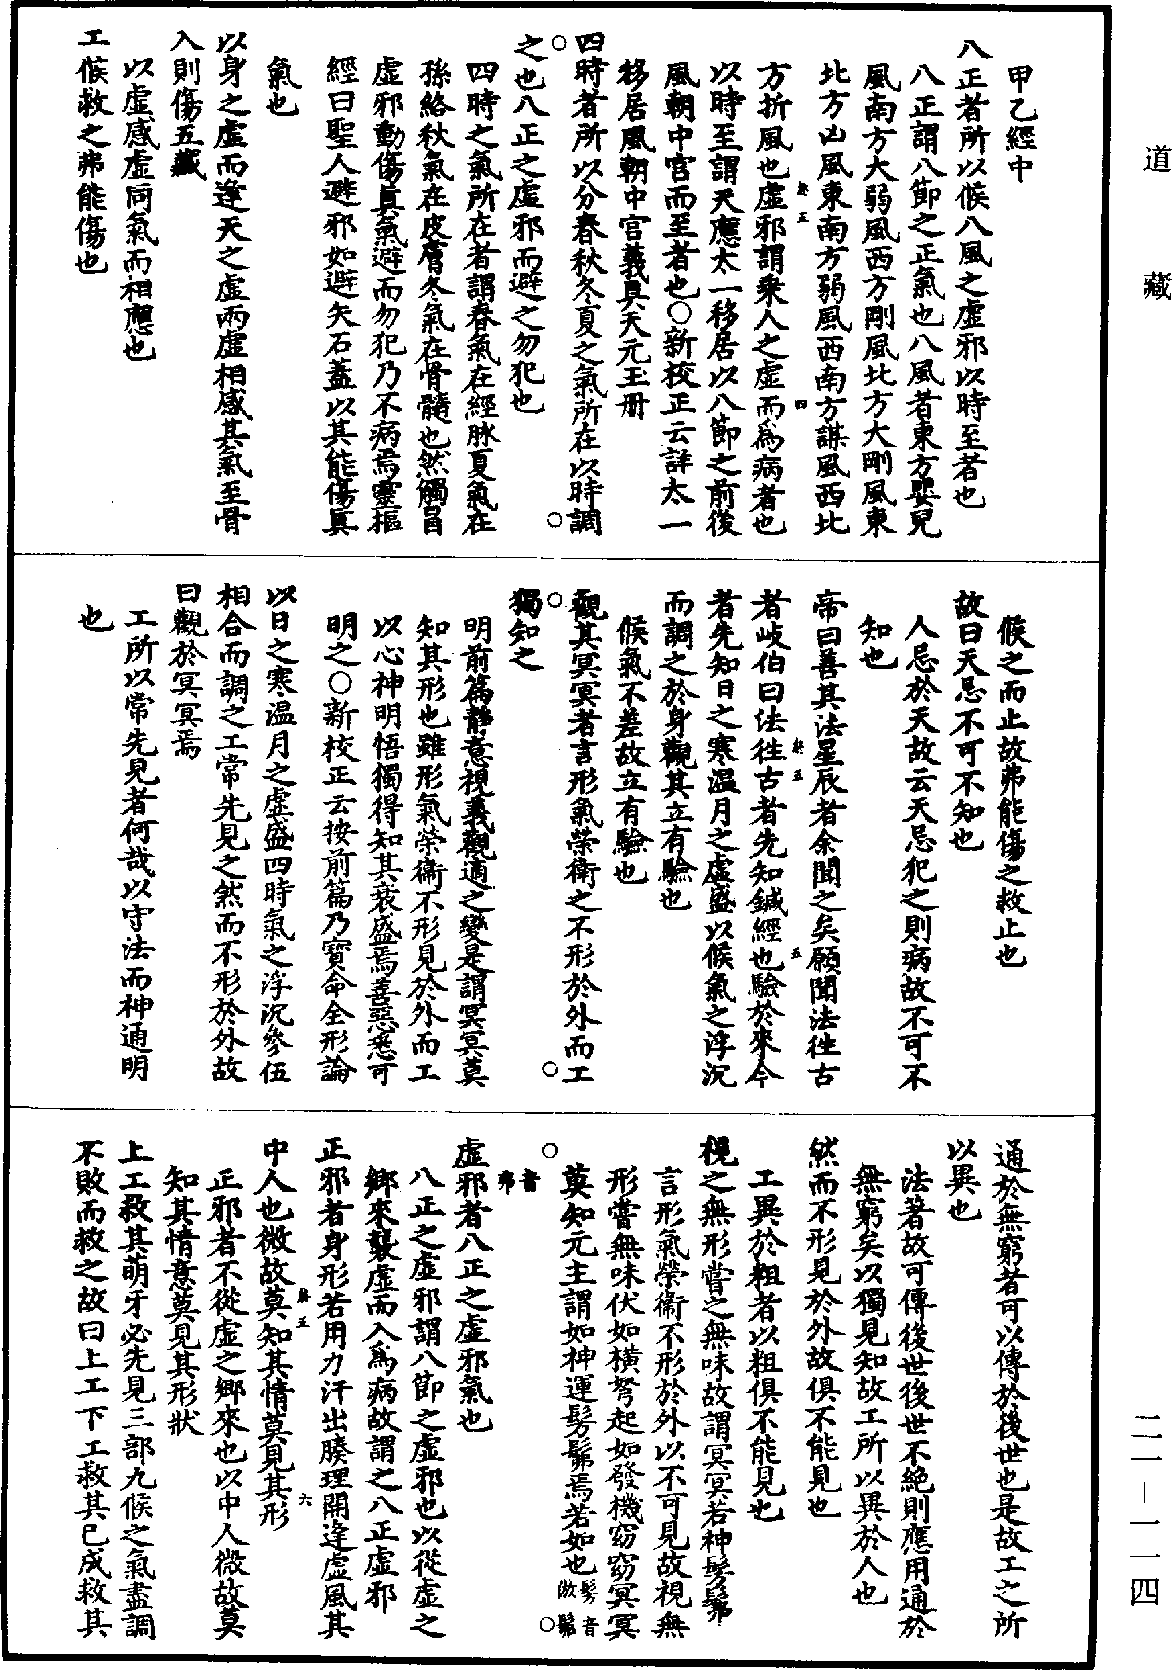 道藏
甲乙經中
八正者所以候八風之虛邪以時至者也
八正謂八節之正氣也八風者東方嬰兒
風南方大弱風西方剛風北方大剛風東
北方凶風東南方弱風西南方謀風西北
方折風也虛邪謂乘人之虛而為病者也
以時至謂天應太一移居以八節之前後
風朝中宮而至者也○新校正云詳太一
移居風朝中宮義具天元玉冊
四時者所以分春秋冬夏之氣所在以時調
之也八正之虛邪而避之勿犯也
四時之氣所在者謂春氣在經脉夏氣在
孫絡秋氣在皮膚冬氣在骨髓也然觸冒
虛邪動傷真氣避而勿犯乃不病焉靈樞
經曰聖人避邪如避矢石蓋以其能傷真
氣也
以身之虛而逢天之虛兩虛相感其氣至骨
入則傷五藏
以虛感虛同氣而相應也
工候救之弗能傷也
候之而止故弗能傷之救止也
故曰天忌不可不知也
人忌於天故云天忌犯之則病故不可不
知也
帝曰善其法星辰者余聞之矣願聞法往古
者歧伯曰法往古者先知鍼經也驗於來今
者先知日之寒溫月之虛盛以候氣之浮沉
而調之於身觀其立有驗也
候氣不差故立有驗也
觀其冥冥者言形氣榮衛之不形於外而工
獨知之
明前篇靜意視義觀適之變是謂冥冥莫
知其形也雖形氣榮衛不形見於外而工
以心神明悟獨得知其衰盛焉善惡悉可
明之○新校正云按前篇乃寶命全形論
以日之寒溫月之虛盛四時氣之浮沉參伍
相合而調之工常先見之然而不形於外故
曰觀於冥冥焉
工所以常先見者何哉以守法而神通明
也
通於無窮者可以傳於後世也是故工之所
以異也
法著故可傳後世後世不絕則應用通於
無窮矣以獨見知故工所以異於人也
然而不形見於外故俱不能見也
工異於粗者以粗俱不能見也
視之無形嘗之無味故謂冥冥若神髣髴
言形氣榮衛不形於外以不可見故視無
形嘗無味伏如橫弩起如發機窈窈冥冥
莫知元主謂如神運髣髴焉若如也髣音
倣髴
音弗
虛邪者八正之虛邪氣也
八正之虛邪謂八節之虛邪也以從虛之
鄉來襲虛而入為病故謂之八正虛邪
正邪者身形若用力汗出腠理開逢虛風其
中人也微故莫知其情莫見其形
正邪者不從虛之鄉來也以中人微故莫
知其情意莫見其形狀
上工救其萌牙必先見三部九候之氣盡調
不敗而救之故曰上工下工救其已成救其
二一—一一四